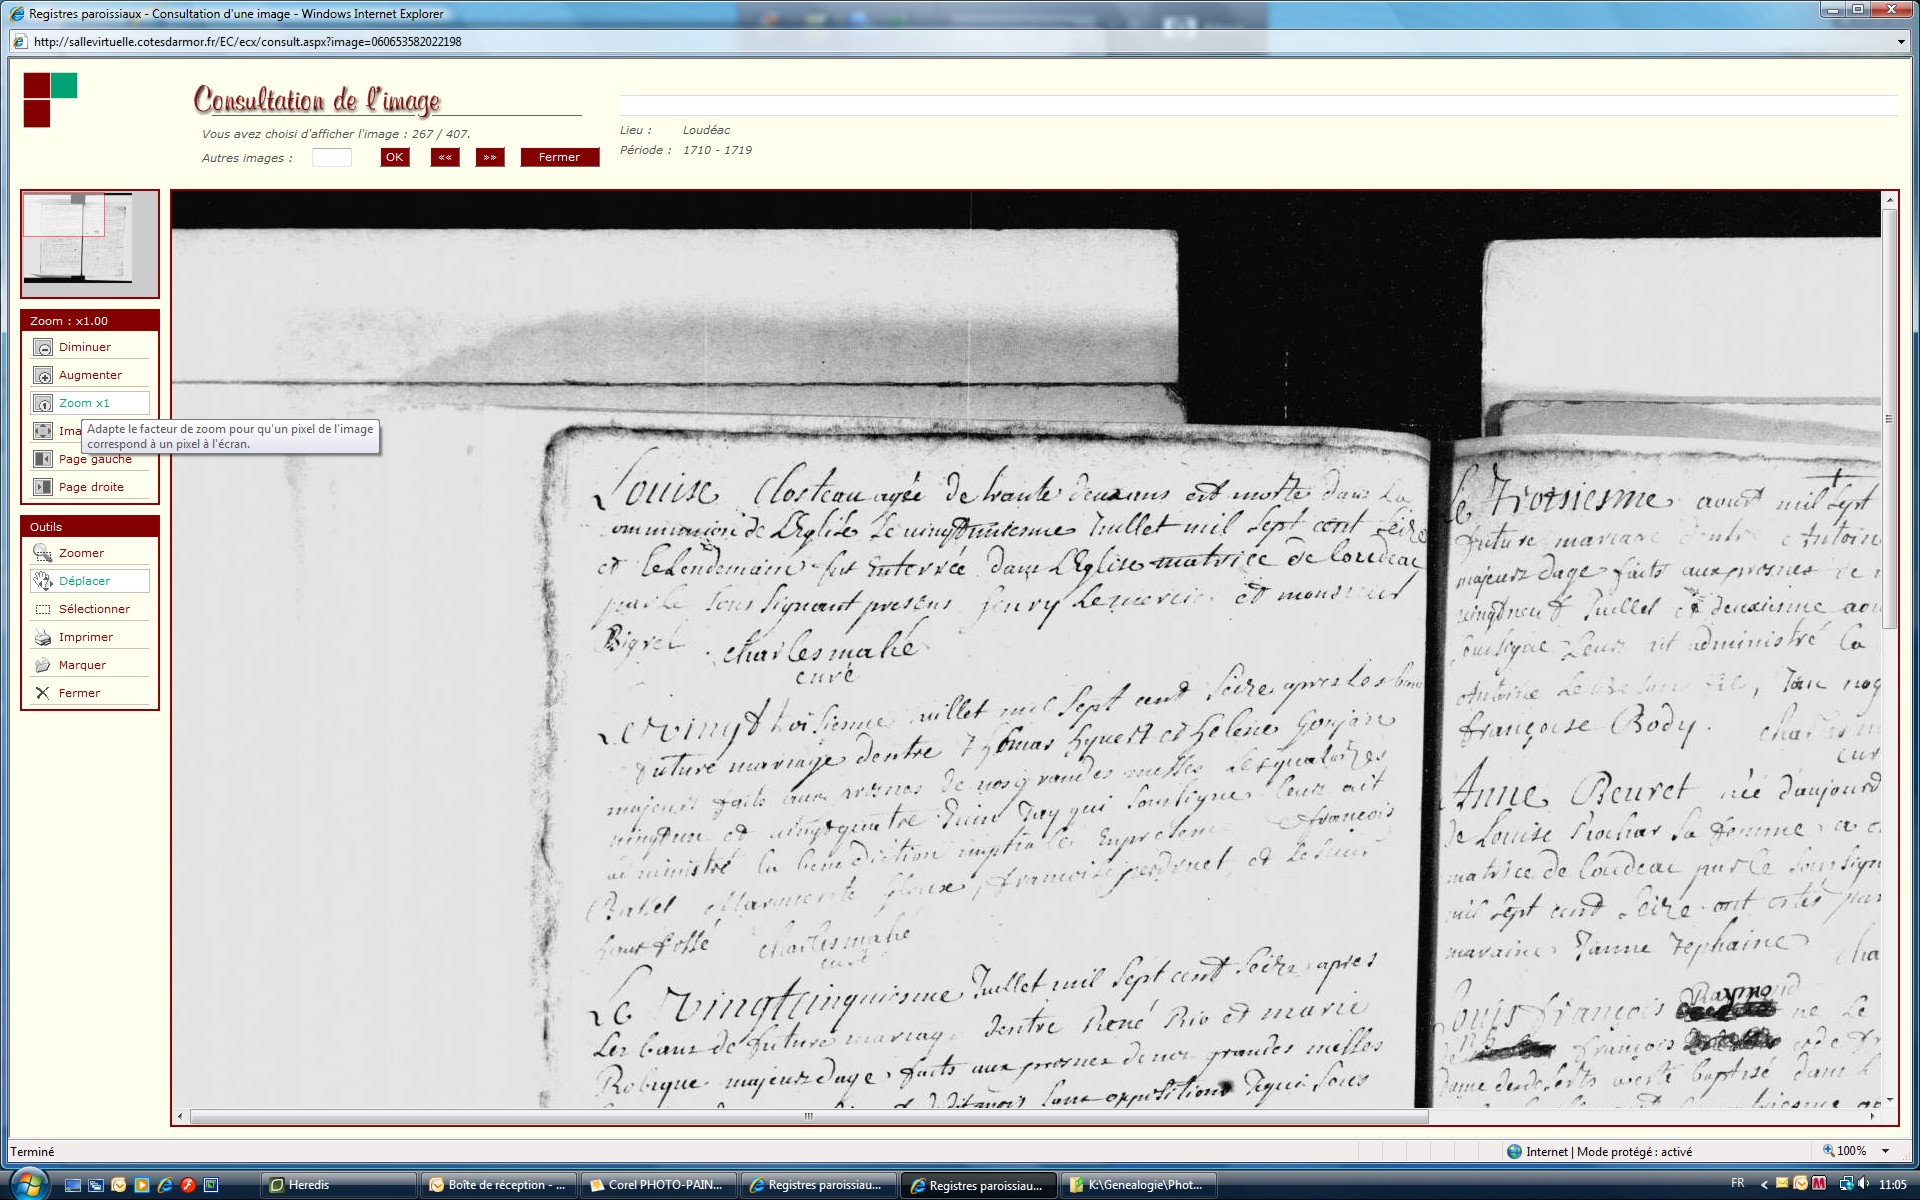 Registres paroissiaux - Consultation d'une image - Windows Internet Explorer
http://sallevirtuelle.cotesdarmor.fr/EC/ecx/consult.aspx?image=060653582022198
Consultation de l'image
Vous avez choisi d'afficher l'image : 267 / 407.
Autres images :
OK
««
»»
Fermer
Lieu : Loudéac
Période : 1710 - 1719
Zoom : x1.00
Diminuer
Augmenter
Zoom x1
Ima
Adapte le facteur de zoom pour qu'un pixel de l'image
correspond à un pixel à l'écran.
Page gauche
Page droite
Outils
Zoomer
Déplacer
Sélectionner
Imprimer
Marquer
Fermer
Louise Closteau agée de trante deux ans est morte dans la
communion de L'Eglise le Juillet mil sept cent seize
et le Lendemain fut Enterrée dans L'Eglise matrice de loudeac
par le sous signant presens henry Lemercier et monsieur
Bigrel charles mahé
curé
Le vingt troisiesme juillet mil sept cent seize apres les bans
future mariage dentre Thomas hyuert et helene Gonjan
majeurs faits aux prosnes de nos grandes messes les quatorzes
vingt un et vingt quatre Juin Jay qui soussigne leurs ait
administré la benediction nuptiale En presence de françois
Ballet Marguerite françoise perdruel et le sieur
fossé charles mahé
curé
Le Vingt cinquiesme Juillet mil sept cent seize apres
Les bans de future mariage dentre René Rio et marie
Robique majeurs dage faits aux prosnes de nos grandes messes
sans opposition Je qui sous
Le Troisiesme aoust mil sept
future mariage dentre Antoine
majeurs dage faits aux prosnes de
vingt neuf Juillet et deuxiesme aou
soussigne Leurs ait administré la
Antoine Jan
françoise Body. charles m
cur
Anne Beuret née d'aujourd
de Louise Rochar sa femme a e
matrice de loudeac par le sous sign
mil sept cent seize ont estés par
maraine Janne Jephaine cha
Raymond
Louis françois ne Le
françois et de
dame baptisé dans L
Terminé
Internet | Mode protégé : activé
100%
Heredis
Boîte de réception - ...
Corel PHOTO-PAIN...
Registres paroissiau...
Registres paroissiau...
K:\Genealogie\Phot...
FR
11:05